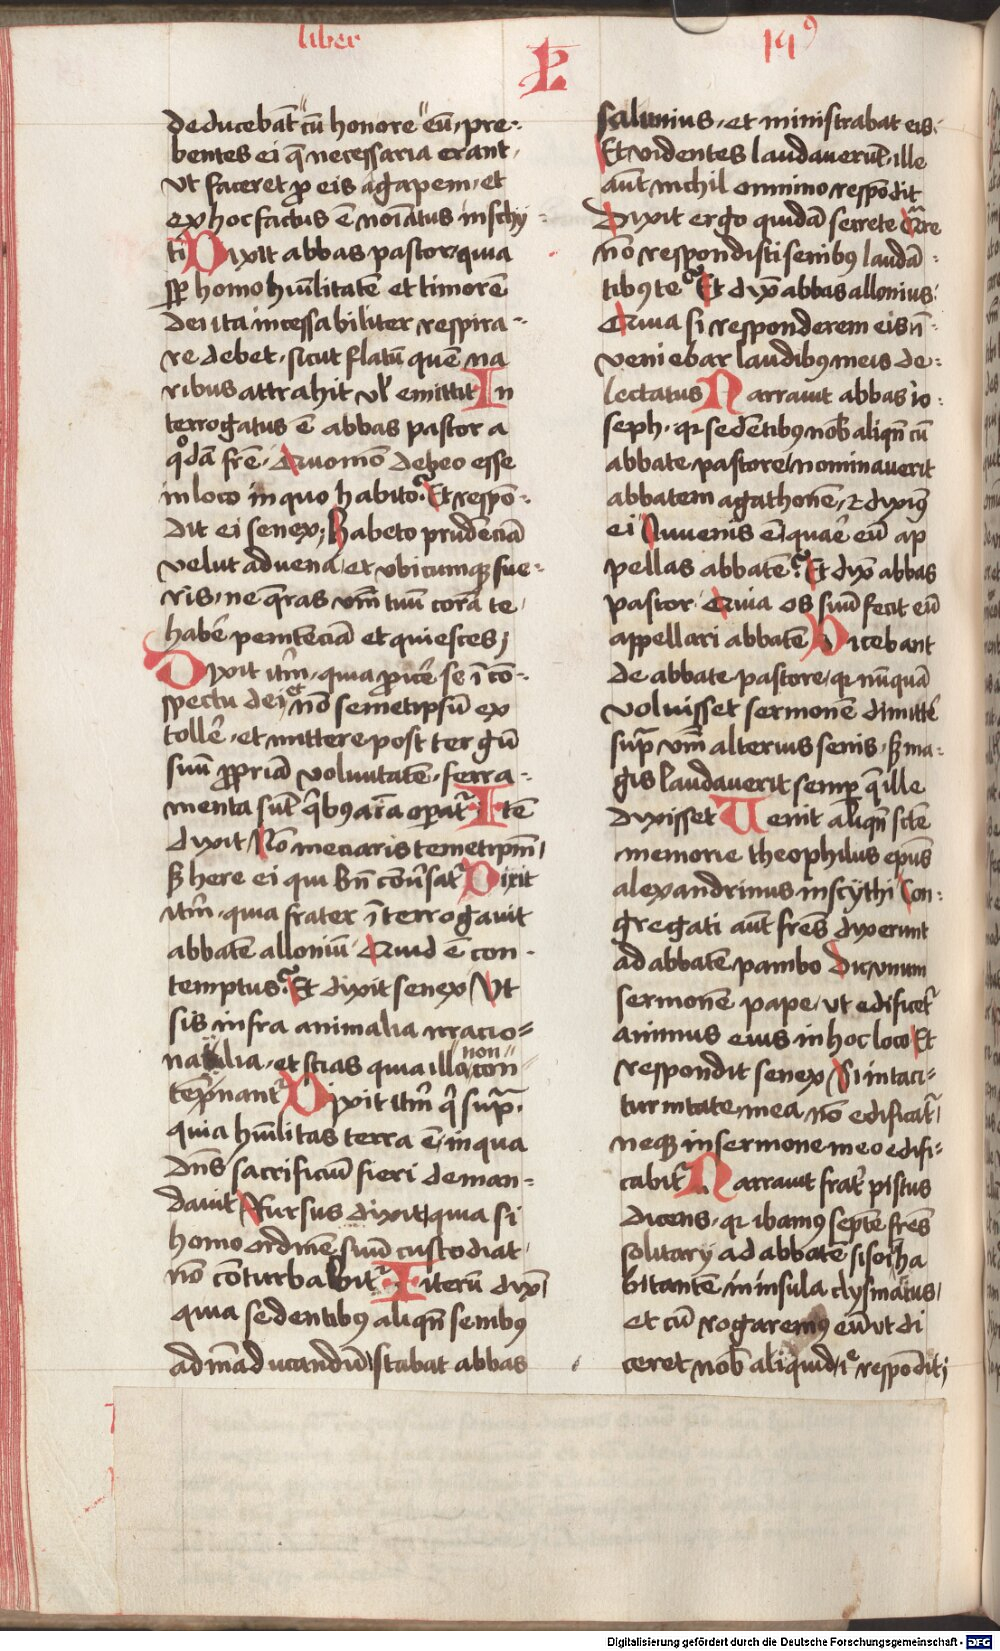 liber
19
deducebāt cū honore eū, pre-
bentes ei q̄ necessaria erant,
vt faceret ꝓ eis agapem, et
ex hoc factus ē noīatus in schy-
ti Dixit abbas pastor, quia
sꝑ homo hūilitatē et timorē
dei ita incessabiliter respira-
re debet, sicut flatū quē na
ribus attrahit vl emittit In
terrogatus ē abbas pastor a
qͦdā fr̄e, Quomō debeo esse
in loco in quo habito? Et respō-
dit ei senex, Habeto prudēciā
velut aduena, et vbicumqꝫ fue-
ris, ne q̄ras vm̄ tuū corā te
habē penitēciā et quiesces;
Dixit itm̄, quia ꝓicē se ī co-
spectu dei, et nō semetipsū ex
tollē, et mittere post tergū
suū ꝓpriā voluntatē, ferra-
menta sūt qͥbꝰ aīa oꝑat Itē
dixit, Nō meciaris temetipm̄,
sꝫ here ei qui bn̄ cōūsat Dixit
itm̄, quia frater īterrogauit
abbatē alloniū, Quid ē con-
temptus? Et dixit senex Vt
sis infra animalia irracio-
nalia, et scias quia illa non con
tēpnant Dixit itm̄ qͥ supͣ,
quia hūilitas terra ē, in qua
dn̄s sacrificiū fieri deman-
dauit Rursus dixit, quia si
homo ordinē suū custodiat,
nō cōturbabit Iterū dix̄,
quia sedentibꝰ aliqn̄ senibꝰ
ad māducandū, stabat abbas
salunius, et ministrabat eis,
Et videntes laudauerūt, ille
aūt nichil omnino respōdit
Dixit ergo quidā secrete Qͣre
nō respondisti senibꝰ laudā-
tibꝰ te? Et dix̄ abbas allonius,
Quia si responderem eis īn-
veniebar laudibꝰ meis de-
lectatus Narrauit abbas io-
seph, qꝛ sedētibꝰ nob̄ aliqn̄ cū
abbate pastore, nominauerit
abbatem agathonē, et diximꝰ
ei Iuuenis ē, quare eū ap
pellas abbatē? Et dix̄ abbas
pastor Quia os suū fecit eū
appellari abbatē Dicebant
de abbate pastore, qꝛ nūquā
voluisset sermonē dimittē
supͣ vm̄ alterius senis, sꝫ ma-
gis laudauerit semꝑ q̄ ille
dixisset Venit aliqn̄ scē
memorie theophilus ep̄us
alexandrinus in scythi Con-
gregati aūt frēs dixerunt
ad abbatē pambo Dic vnum
sermonē pape, vt edificet
animus eius in hoc loco Et
respondit senex Si in taci-
turnitate mea nō edificat,
neqꝫ in sermone meo edifi-
cabit Narrauit frat̄ pistus
dicens, qꝛ ibamꝰ septē frēs
solitarij ad abbatē sisoi ha
bitantē in insula clysmatus,
et cū rogaremꝰ eū vt di
ceret nob̄ aliquid, respōdit;
Digitalisierung gefördert durch die Deutsche Forschungsgemeinschaft - DFG